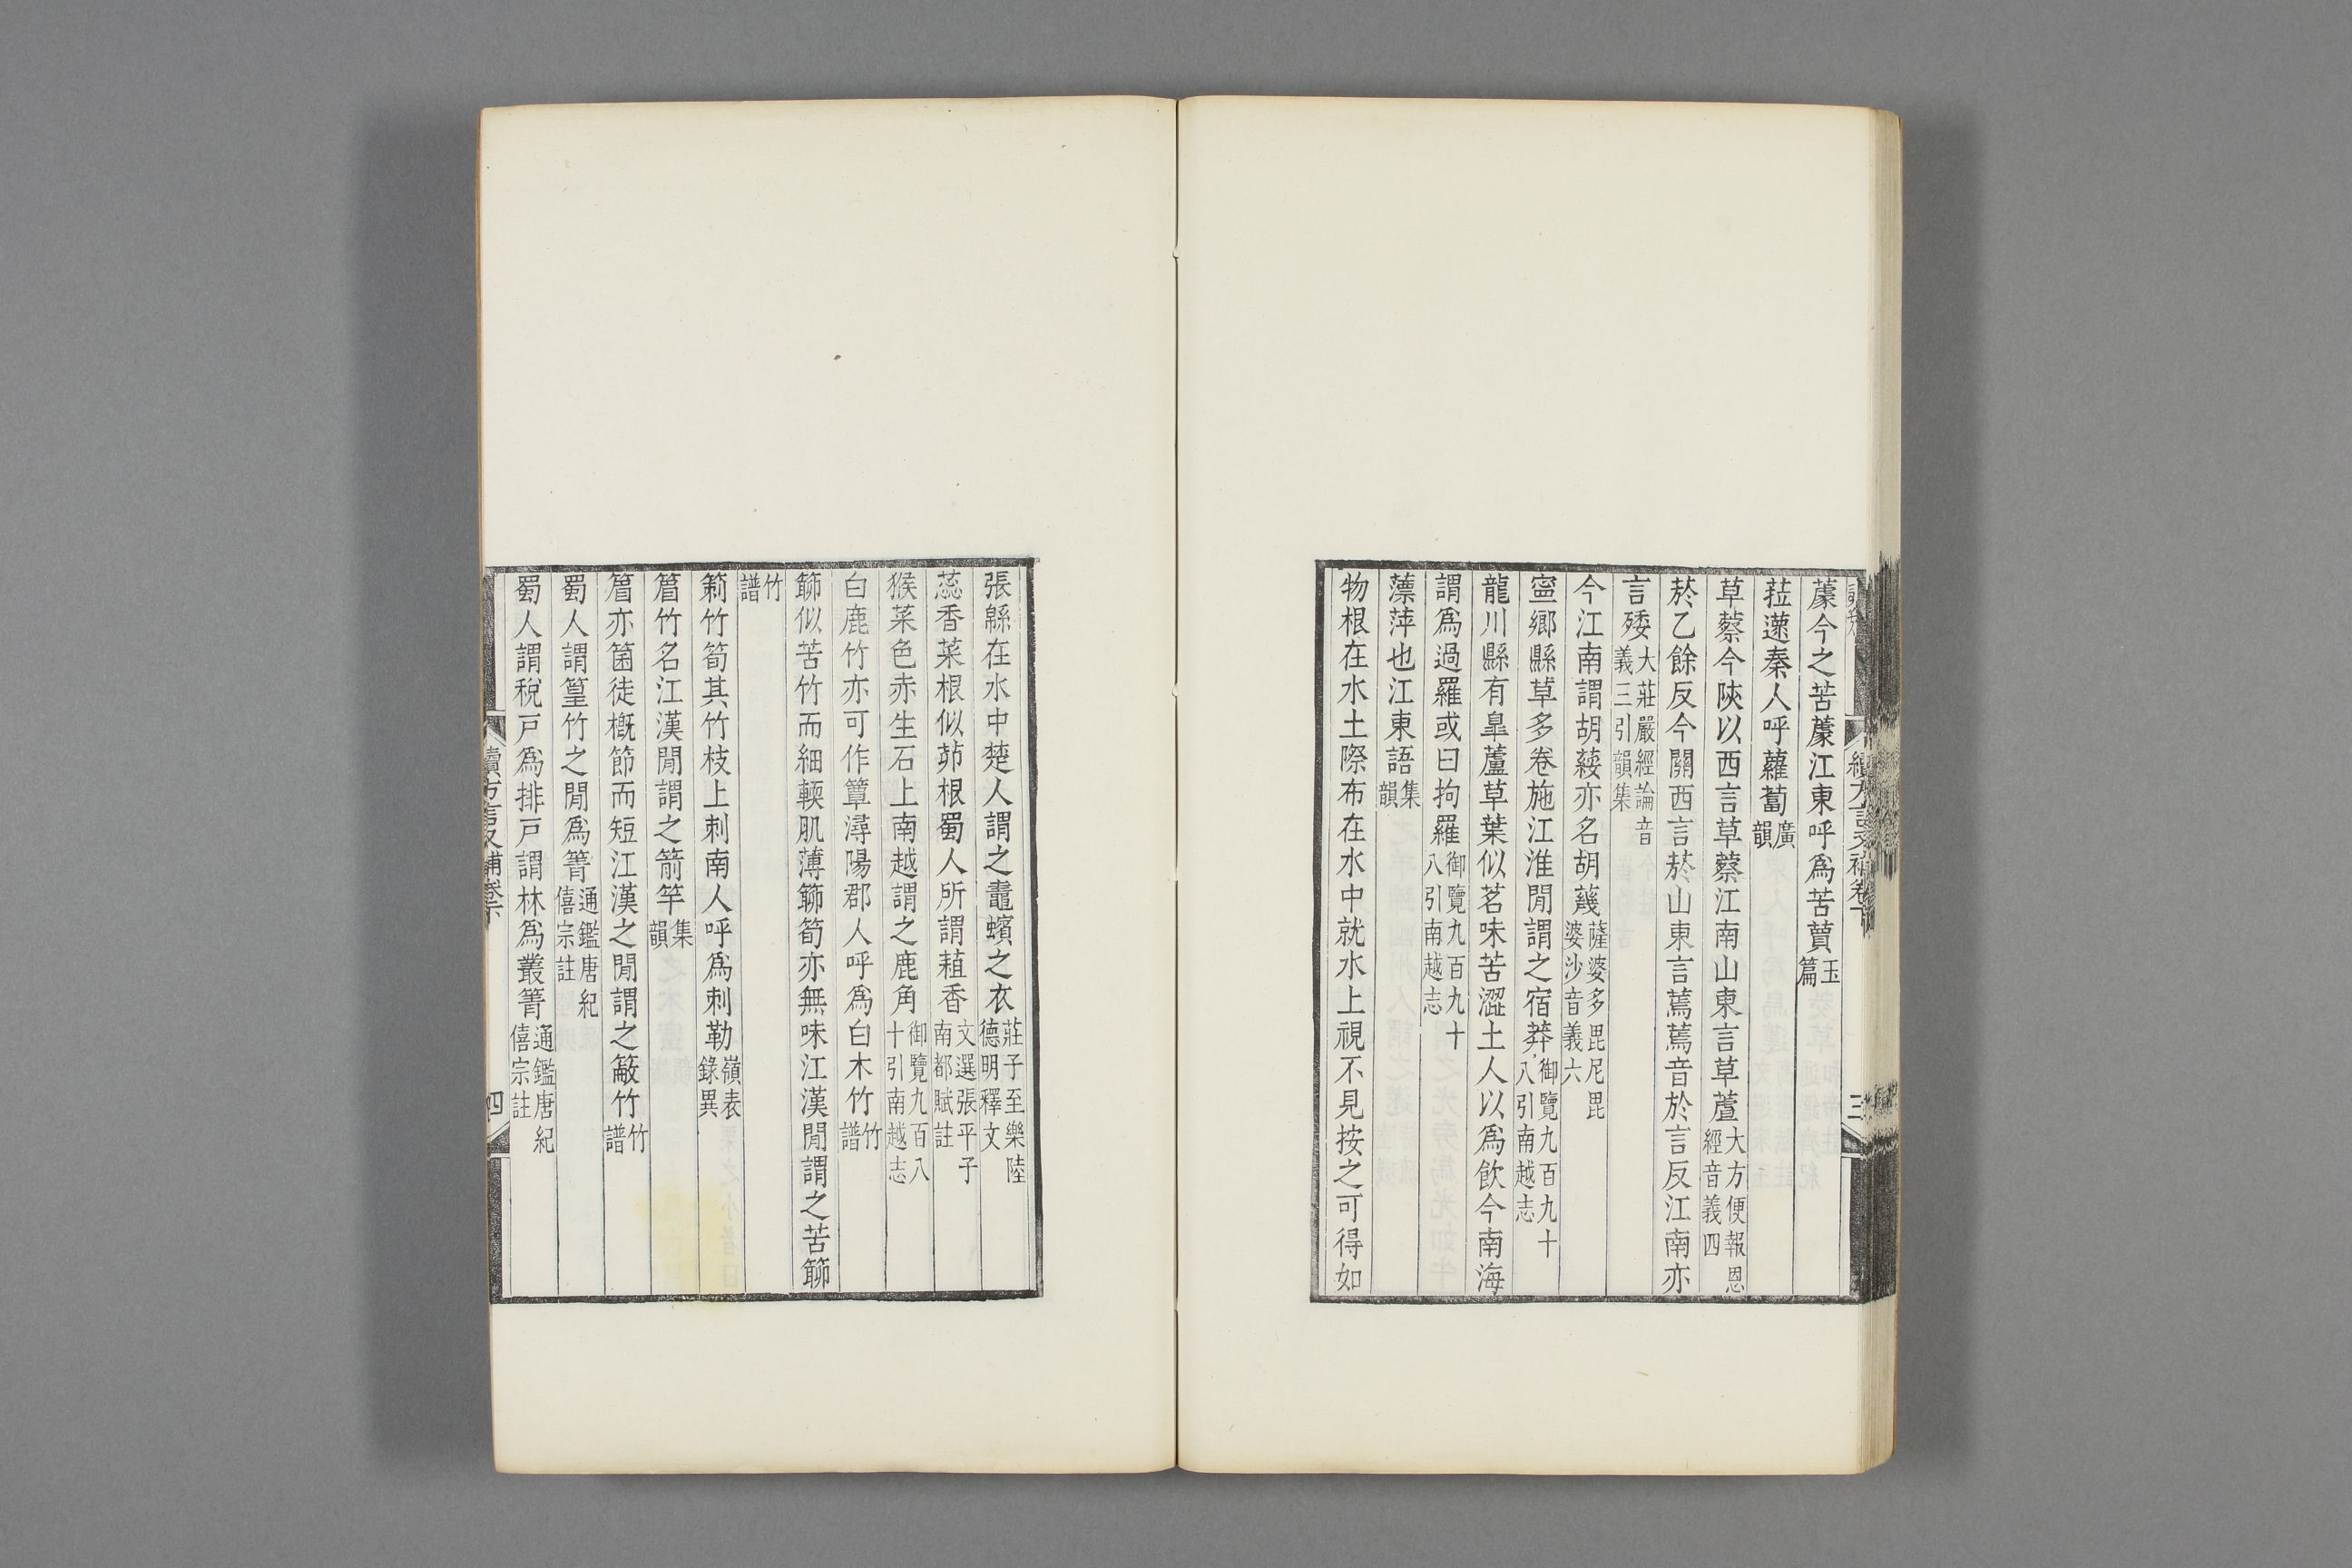 蘪今之苦蘪江東呼爲苦蕒玉篇
菈蓫秦人呼蘿蔔廣韻
草蔡今陝以西言草蔡江南山東言草蓙大方便報恩經音義四
菸乙餘反今關西言菸山東言蔫蔫音於言反江南亦
言矮大莊嚴經論音義三引韻集
今江南謂胡荾亦名胡蔱薩婆多毘尼毘婆沙音義六
寧鄉縣草多卷施江淮閒謂之宿莽御覽九百九十八引南越志
龍川縣有皐蘆草葉似茗味苦澀土人以爲飲今南海
謂爲過羅或曰拘羅御覽九百九十八引南越志
薸萍也江東語集韻
物根在水土際布在水中就水上視不見按之可得如
續方言又補卷下
三
張緜在水中楚人謂之鼃蠙之衣莊子至樂陸德明釋文
蕊香菜根似茆根蜀人所謂葅香文選張平子南都賦註
猴菜色赤生石上南越謂之鹿角御覽九百八十引南越志
白鹿竹亦可作簟潯陽郡人呼爲白木竹竹譜
篽似苦竹而細輭肌薄篽筍亦無味江漢閒謂之苦篽
竹譜
簕竹筍其竹枝上刺南人呼爲刺勒嶺表錄異
篃竹名江漢閒謂之箭竿集韻
篃亦箘徒槪節而短江漢之閒謂之䉛竹竹譜
蜀人謂篁竹之閒爲箐通鑑唐紀僖宗註
蜀人謂稅戸爲排戸謂林爲叢箐通鑑唐紀僖宗註
續方言又補卷下
四